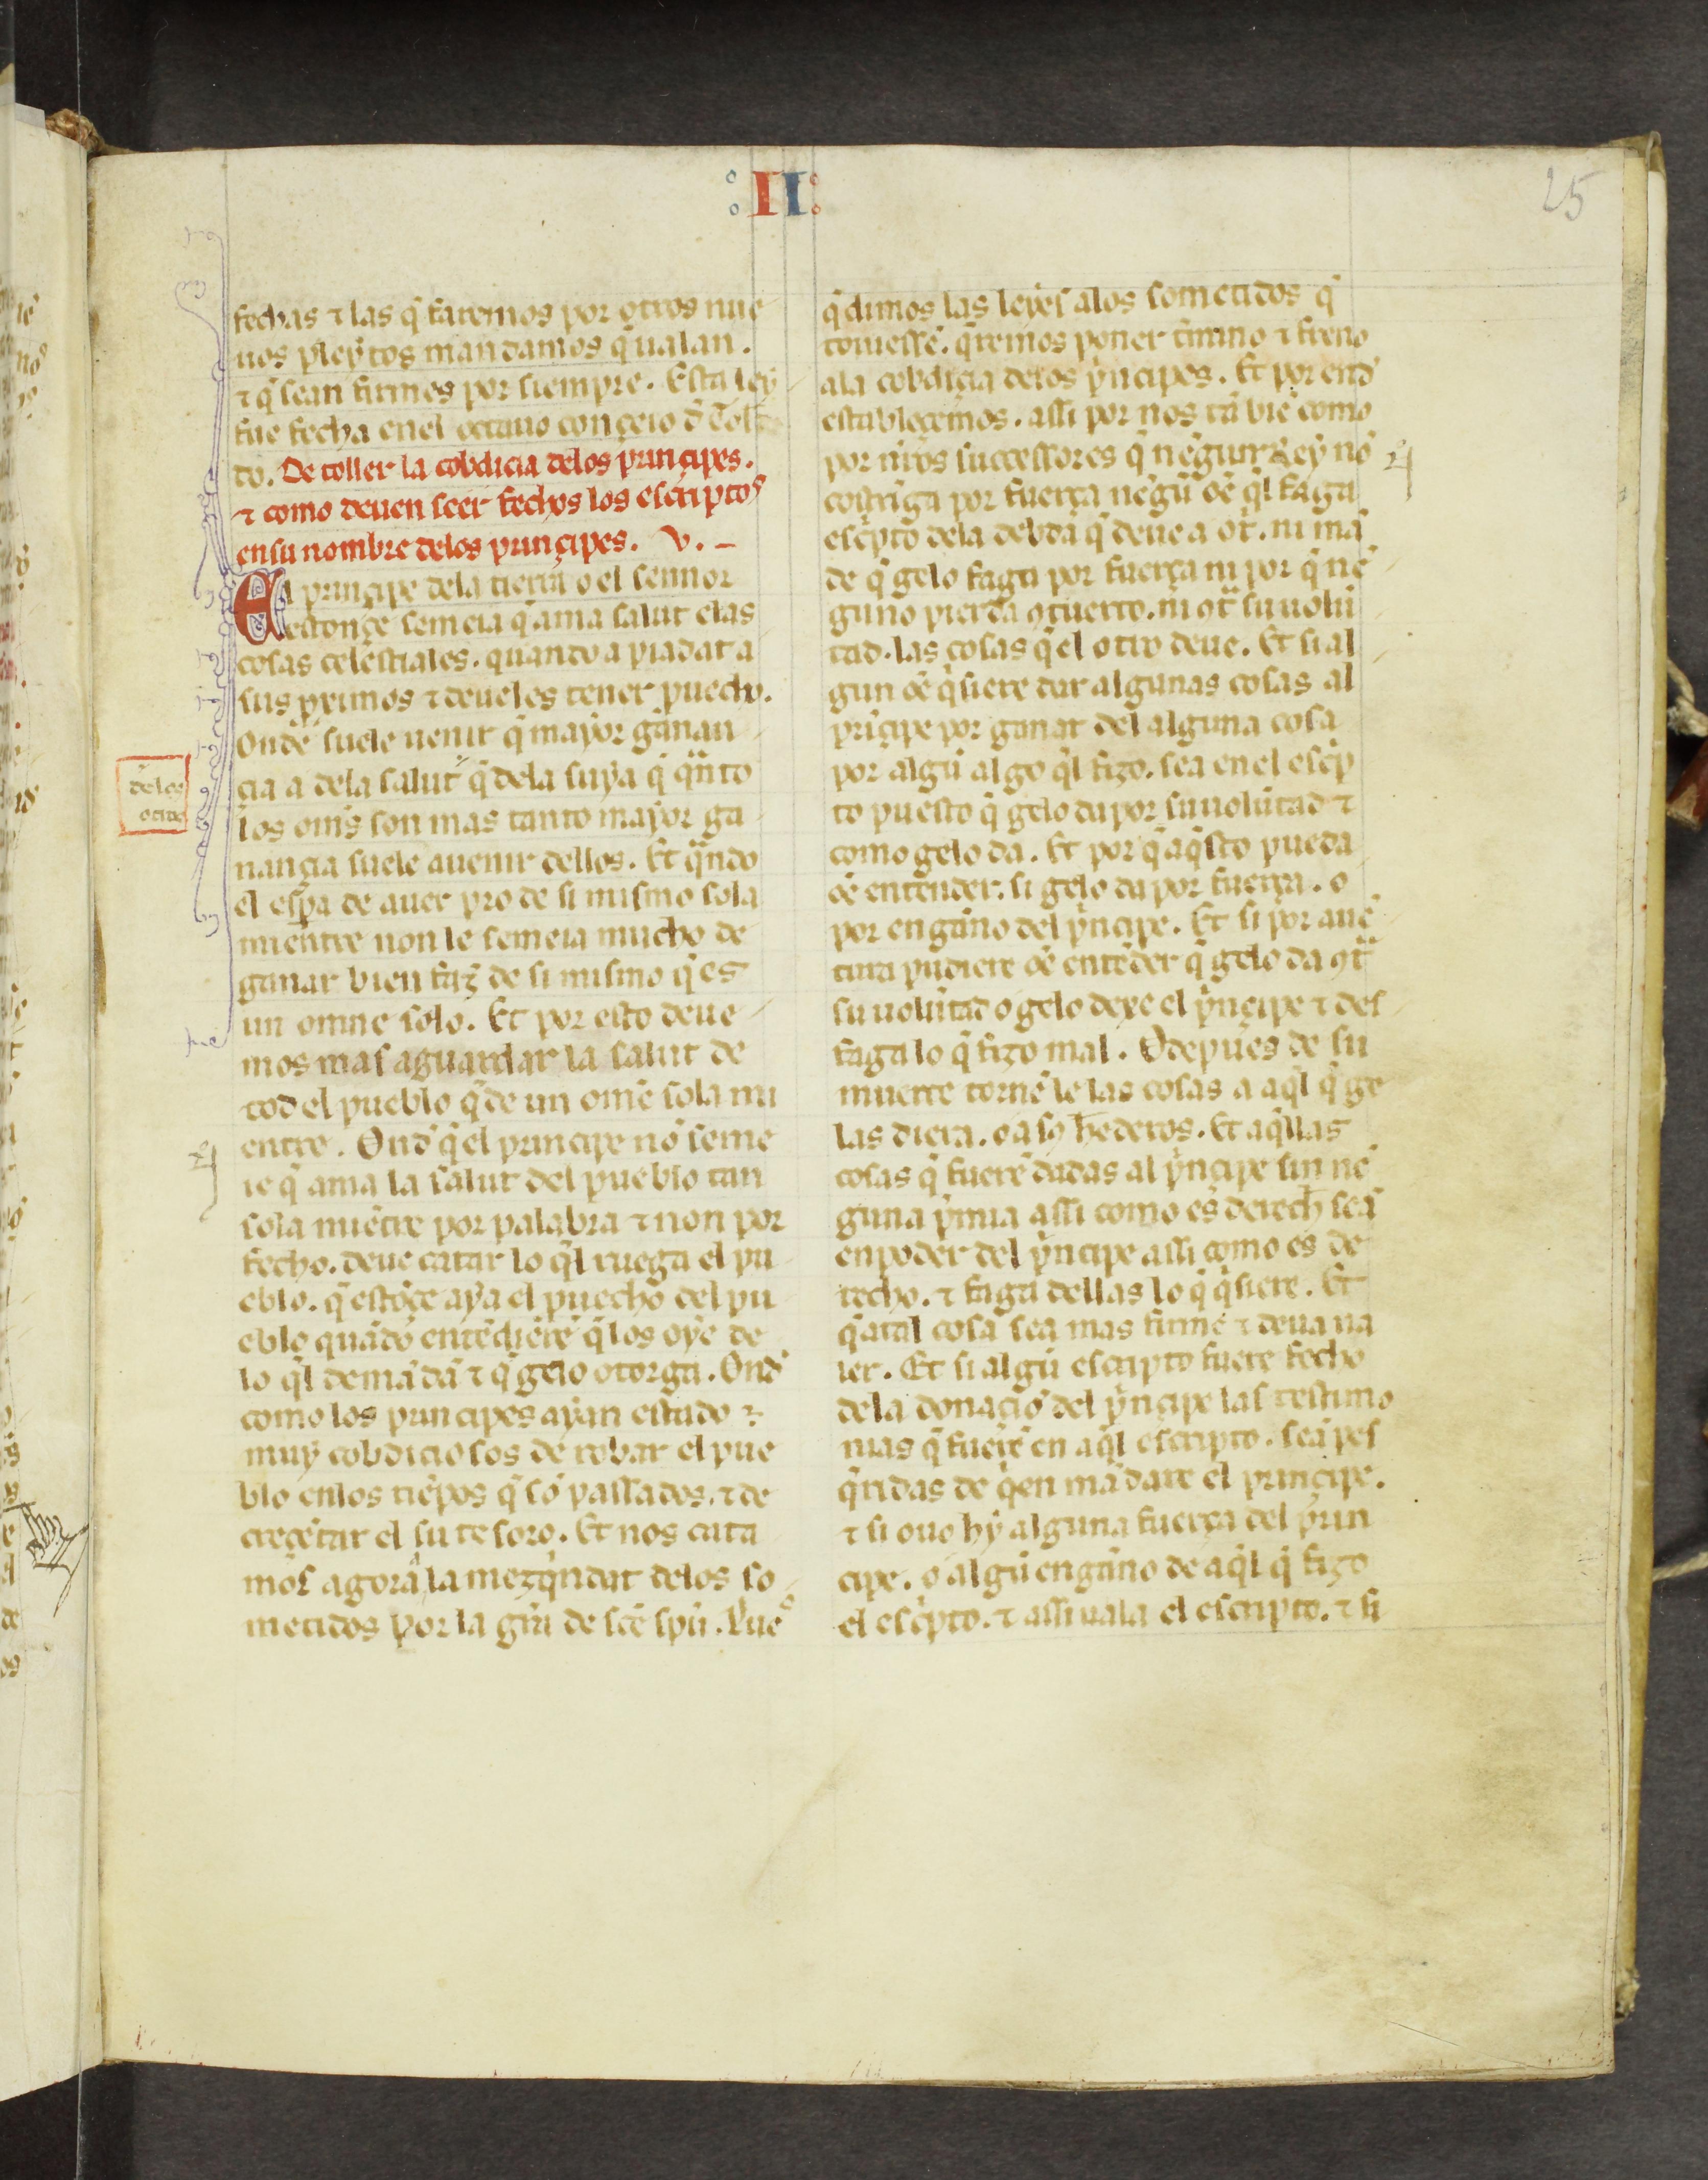 :II:
25
fechas ⁊ las q̃ faremos por otros nue
uos pleytos mandamos q̃ ualan.
⁊ q̃ sean firmes por siempre. Esta ley
fue fecha enel octauo conçeio d̃ Tole
do. De toller la cobdicia delos prinçipes.
⁊ como deuen seer fechos los escriptos
en su nombre delos prinçipes. V.
El prinçipe dela tierra o el sennor
estonçe semeia q̃ ama salut elas
cosas celestiales. quando a piadat a
sus primos ⁊ deueles tener puecho.
Onde suele uenir q̃ mayor ganan
çia a dela salut q̃ dela suya q̃ qũnto
los om̃s son mas tanto mayor ga
nançia suele auenir dellos. Et qũndo
el esp̃a de auer pro de si mismo sola
mientre non le semeia mucho de
ganar bien faz de si mismo q̃ es
un omne solo. Et por esto deue
mos mas aguardar la salut de
tod el pueblo q̃ de un om̃e sola mi
entre. Ond̃ q̃ el principe nõ seme
ie q̃ ama la salut del pueblo tan
sola miẽtre por palabra ⁊ non por
fecho. deue catar lo q̃l ruega el pu
eblo. q̃ estõçe aya el puecho del pu
eblo quãdo entẽdierẽ q̃ los oye de
lo q̃l demãdã ⁊ q̃ gelo otorga. Ond̃
como los principes ayan estado ⁊
muy cobdiciosos de robar el pue
blo enlos tiẽpos q̃ sõ passados. ⁊ de
creçẽtar el su tesoro. Et nos cata
mos agora la mezq̃ndat delos so
metidos por la gr̃a de sc̃e sp̃u. Q̃ue
delos
otros
q̃ dimos las leyes alos sometidos q̃
touiessẽ. q̃remos poner t̃mino ⁊ freno
ala cobdiçia delos p̃ncipes. Et por end̃
establecemos. assi por nos tã biẽ como
por nr̃os successores q̃ nẽgun Rey nõ
costriga por fuerça nẽgũ oẽ q̃l faga
esc̃pto dela debda q̃ deue a ot̃. ni mã
de q̃ gelo faga por fuerça ni por q̃ nẽ
guno pierda ꝯ tuerto. ni ꝯt̃ su uolũ
tad. las cosas q̃ el otro deue. Et si al
gun oẽ q̃siere dar algunas cosas al
prĩçipe por ganar del alguna cosa
por algũ algo q̃l fizo. sea en el esc̃p
to puesto q̃ gelo da por su uolũtad ⁊
como gelo da. Et por q̃ aq̃sto pueda
oẽ entender. si gelo da por fuerça. o
por engãno del p̃ncipe. Et si por auẽ
tura pudiere oẽ entẽder q̃ gelo da ꝯt̃
su uolũtad o gelo dexe el p̃nçipe ⁊ des
faga lo q̃ fizo mal. O depues de su
muerte tornẽ le las cosas a aq̃l q̃ ge
las diera. o a sꝯ h̃ederos. Et aq̃llas
cosas q̃ fuerẽ dadas al p̃ncipe sin nẽ
guna p̃mia assi como es derech̃ seã
en poder del p̃ncipe assi como es de
recho. ⁊ faga dellas lo q̃ q̃siere. Et
q̃ atal cosa sea mas firme ⁊ deua ua
ler. Et si algũ escripto fuere fecho
dela donaciõ del p̃nçipe las testimo
nias q̃ fuerẽ en aq̃l escripto. seã pes
q̃ridas de q̃en mãdare el prinçipe.
⁊ si ouo hy alguna fuerça del prin
cipe. o algũ engãno de aq̃l q̃ fizo
el esc̃pto. ⁊ assi uala el escripto. ⁊ si